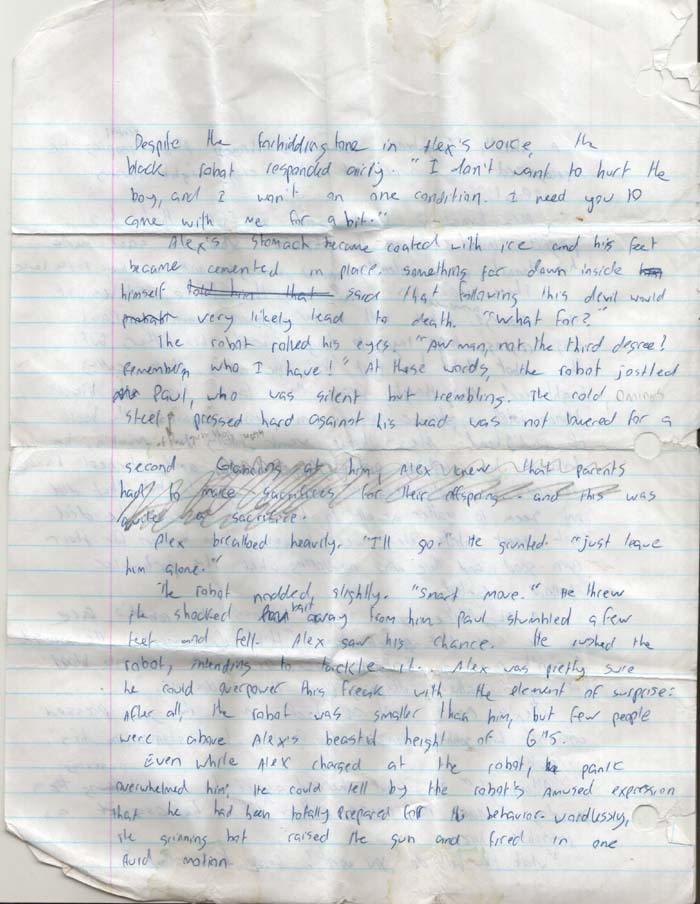 Despite the forbidding tone in Alex's voice, the
black robot responded airily. "I don't want to hurt the
boy, and I won't on one condition. I need you to
come with me for a bit."
Alex's stomach became coated with ice and his feet
became cemented in place. something far down inside him
himself told him that said that following this devil would
probabl very likely lead to death. "What for?"
The robot rolled his eyes. "Aw man, not the third degree!
Remember who I have!" At these words, the robot jostled
Paul, who was silent but trembling. The cold ominous
steel pressed hard against his head was not lowered for a
second Glancing at him, Alex knew that parents
had to make sacrifices for their offspring - and this was
quite a sacrifice.
Alex breathed heavily. "I'll go." He grunted. "just leave
him alone."
The robot nodded, slightly. "Smart move." He threw
the shocked bait away from him Paul stumbled a few
feet and fell. Alex saw his chance. He rushed the
robot, intending to tackle it. Alex was pretty sure
he could overpower this freak with the element of surprise:
After all, the robot was smaller than him, but few people
were above Alex's beastid height of 6"5.
Even while Alex charged at the robot, panic
overwhelmed him; He could tell by the robot's amused expression
that he had been totally prepared for this behavior. wordlessly,
the grinning bot raised the gun and fired in one
fluid motion